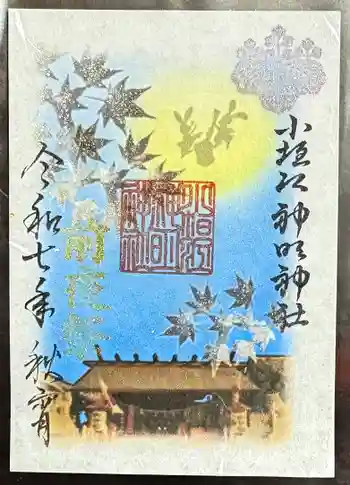 小垣江神明神社
小垣江
神明
神社
令和七年 秋宵